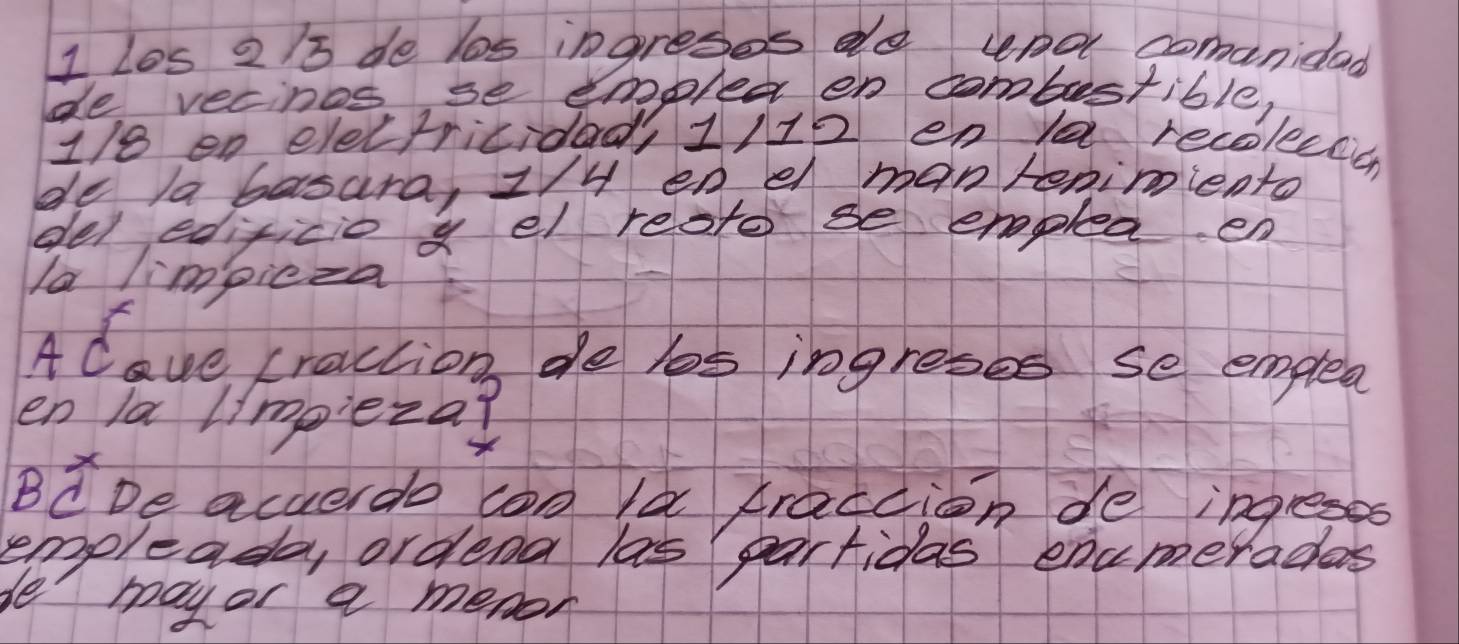 1 Los 2/3 de los ingresos de una comanidad
de vecinos, se emplea en combustible,
1/8 en elelctricidad, 1/12 en la recolección
de la basura, 1/4 en el mantenimiento
del edificio y el resto se emplea en
la limpieza
A ¿Que fraccion de los ingresos se emplea
en la limpieza?
B ¿De acuerdo con la fracción de ingresos
empleada, ordena las partidas enumeradas
de mayor a menor